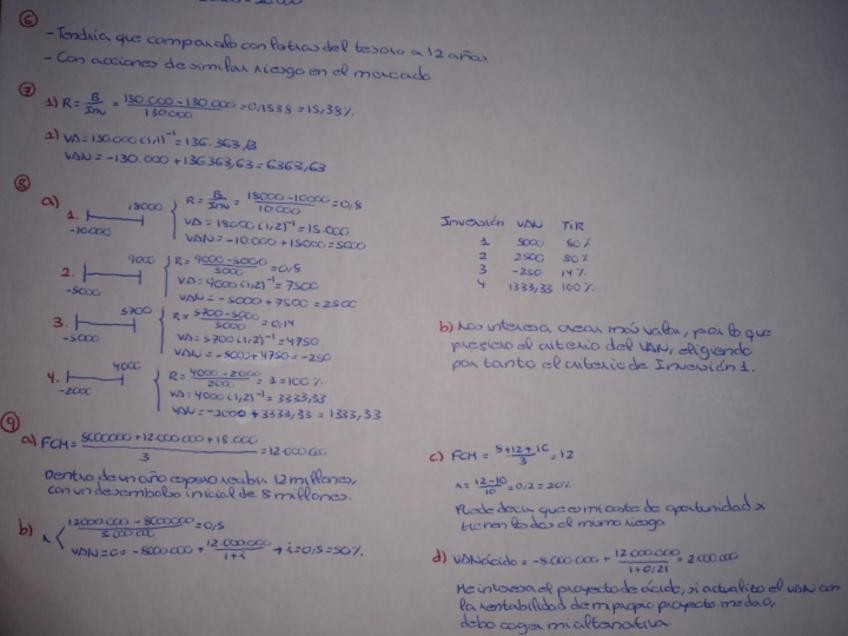 ⑥
- Tendría que compararlo con letras del tesoro a 12 años
- Con acciones de similar riesgo en el mercado
⑦
1) R = B/Inv = (150.000 - 130.000)/130.000 = 0,1538 = 15,38%
2) VA = 150.000 (1,1)⁻¹ = 136.363,63
VAN = -130.000 + 136363,63 = 6363,63
⑧
a)
1. -10.000 18000
R = B/Inv = (18000 - 10000)/10.000 = 0,8
VA = 18000 (1,2)⁻¹ = 15.000
VAN = -10.000 + 15000 = 5000
2. -5000 9000
R = (9000 - 5000)/5000 = 0,8
VA = 9000 (1,2)⁻¹ = 7500
VAN = -5000 + 7500 = 2500
3. -5000 5700
R = (5700 - 5000)/5000 = 0,14
VA = 5700 (1,2)⁻¹ = 4750
VAN = -5000 + 4750 = -250
4. -2000 4000
R = (4000 - 2000)/2000 = 1 = 100%
VA = 4000 (1,2)⁻¹ = 3333,33
VAN = -2000 + 3333,33 = 1333,33
Inversión VAN TIR
1 5000 80%
2 2500 80%
3 -250 14%
4 1333,33 100%
b) Nos interesa crear más valor, por lo que
el criterio del VAN, eligiendo
por tanto el criterio de Inversión 1.
⑨
a) FCM = (8000000 + 12.000.000 + 18.000)/3 = 12.000.000
Dentro de un año espero recibir 12 millones,
con un desembolso inicial de 8 millones.
b) (12000.000 - 8000000)/8.000.000 = 0,5
VAN = 0 = -8000000 + 12.000.000/(1+i) → i = 0,5 = 50%.
c) FCM = (8+12+16)/3 = 12
r = (12-10)/10 = 0,2 = 20%
Puede decir que es mi coste de oportunidad x
tienen todos el mismo riesgo
d) VAN ácido = -8.000.000 + 12.000.000/(1+0,2) = 2.000.000
Me interesa el proyecto de ácido, si actualizo el VAN con
la rentabilidad de mi propio proyecto me da 0,
debo coger mi alternativa